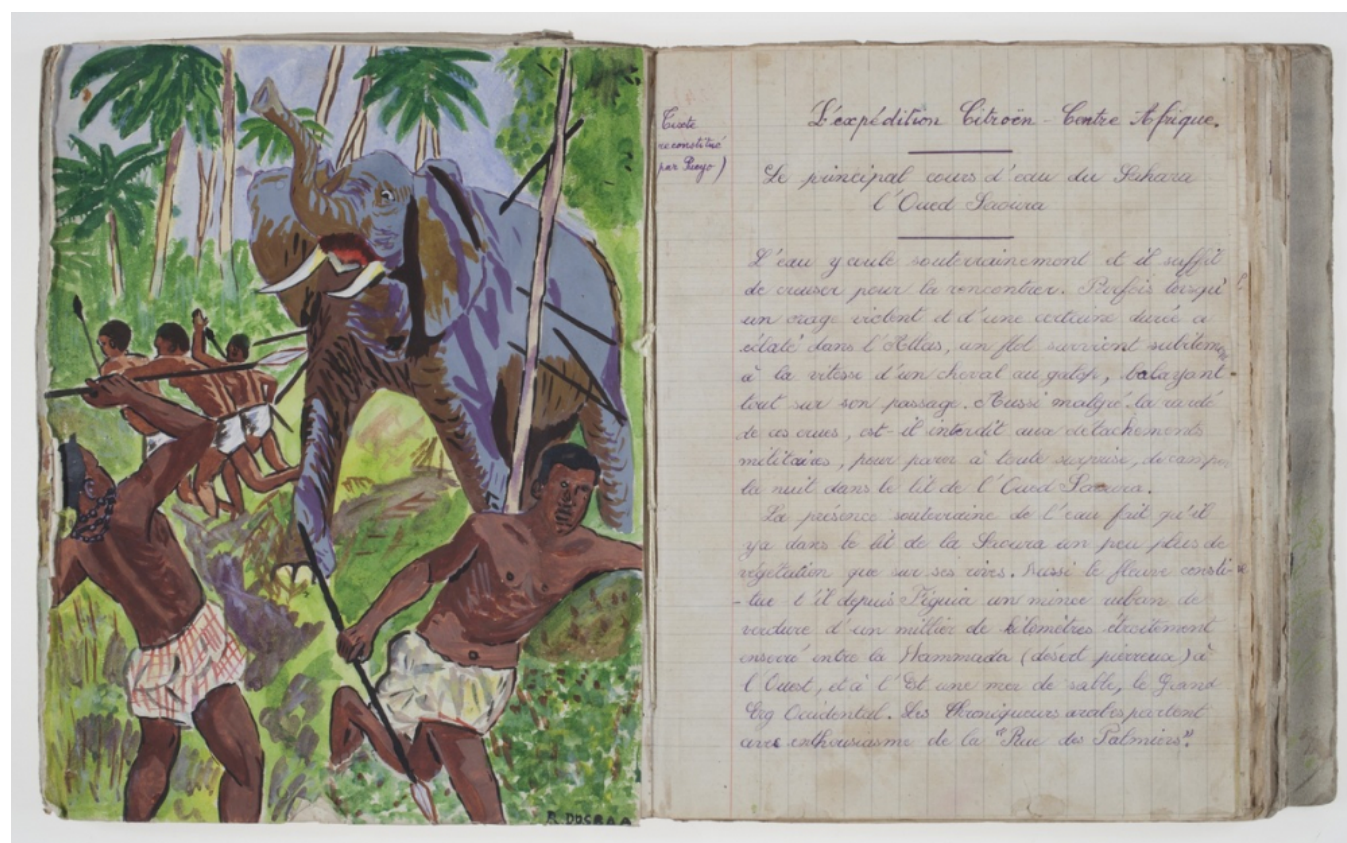 Texte
reconstitué
par Pueyo)
L'expédition Citroën - Centre Afrique.
Le principal cours d'eau du Sahara
l'Oued Saoura
L'eau y coule souterrainement et il suffit
de creuser pour la rencontrer. Parfois lorsqu'
un orage violent et d'une certaine durée a
éclaté dans l'Atlas, un flot survient subitement
à la vitesse d'un cheval au galop, balayant
tout sur son passage. Aussi malgré la rareté
de ces crues, est-il interdit aux détachements
militaires, pour parer à toute surprise, de camper
la nuit dans le lit de l'Oued Saoura.
La présence souterraine de l'eau fait qu'il
y a dans le lit de la Saoura un peu plus de
végétation que sur ses rives. Aussi le fleuve consti-
-tue t'il depuis un mince ruban de
verdure d'un millier de kilomètres étroitement
enserré entre la Hammada (désert pierreux) à
l'Ouest, et à l'Est une mer de sable, le Grand
Erg Occidental. Les Chroniqueurs arabes parlent
avec enthousiasme de la "Rue des Palmiers".